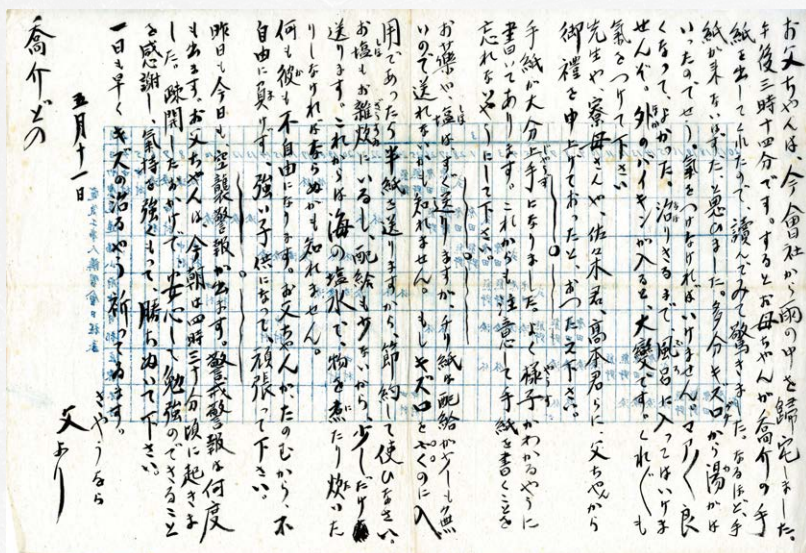 お父ちやんは、今、會社から雨の中を歸宅しました。
午後三時十四分です。するとお母ちやんが喬介の手
紙を出してくれたので、讀んでみて驚きました。なるほど、手
紙が来ないはずだと思ひました。多分キズ口から湯がは
いつたのでせう。氣をつけなければいけません。マアく良
くなつて、よかつた。治りきるまで、風呂に入つてはいけま
せんぞ。外のバイキンが入ると、大変です。くれぐも
氣をつけて下さい。
先生や、寮母さんや、佐々木君、髙本君らに、父ちやんから
御禮を申上げておつたと、おつたえ下さい。
手紙が大分上手になりました。よく様子がわかるやうに
書いてあります。これからも注意して手紙を書くことを
忘れないやうにして下さい。
お藥や塩は、すぐ送りますが、チリ紙は配給が少しも無
いので送れないかも知れません。もしキズ口をふくのに入
用であつたら半紙を送りますから、節約して使ひなさい。
お塩もお雑炊にいるし、配給も少ないから、少しだけ
送ります。これからは海の塩水で、物を煮たり炊いた
りしなければならぬかも知れません。
何も彼も不自由になります。お父ちやんがたのむから、不
自由に負けず、強い子供になつて、頑張つて下さい。
昨日も今日も、空襲警報が出ます。警戒警報は何度
も出ます。お父ちやんは、今朝は四時三十分頃に起きま
した。疎開したおかげで、安心して勉強のできること
を感謝し、氣持を強くもつて、勝ちぬいて下さい。
一日も早くキズの治るやう祈つてゐます。
さやうなら
五月十一日
父より
喬介どの